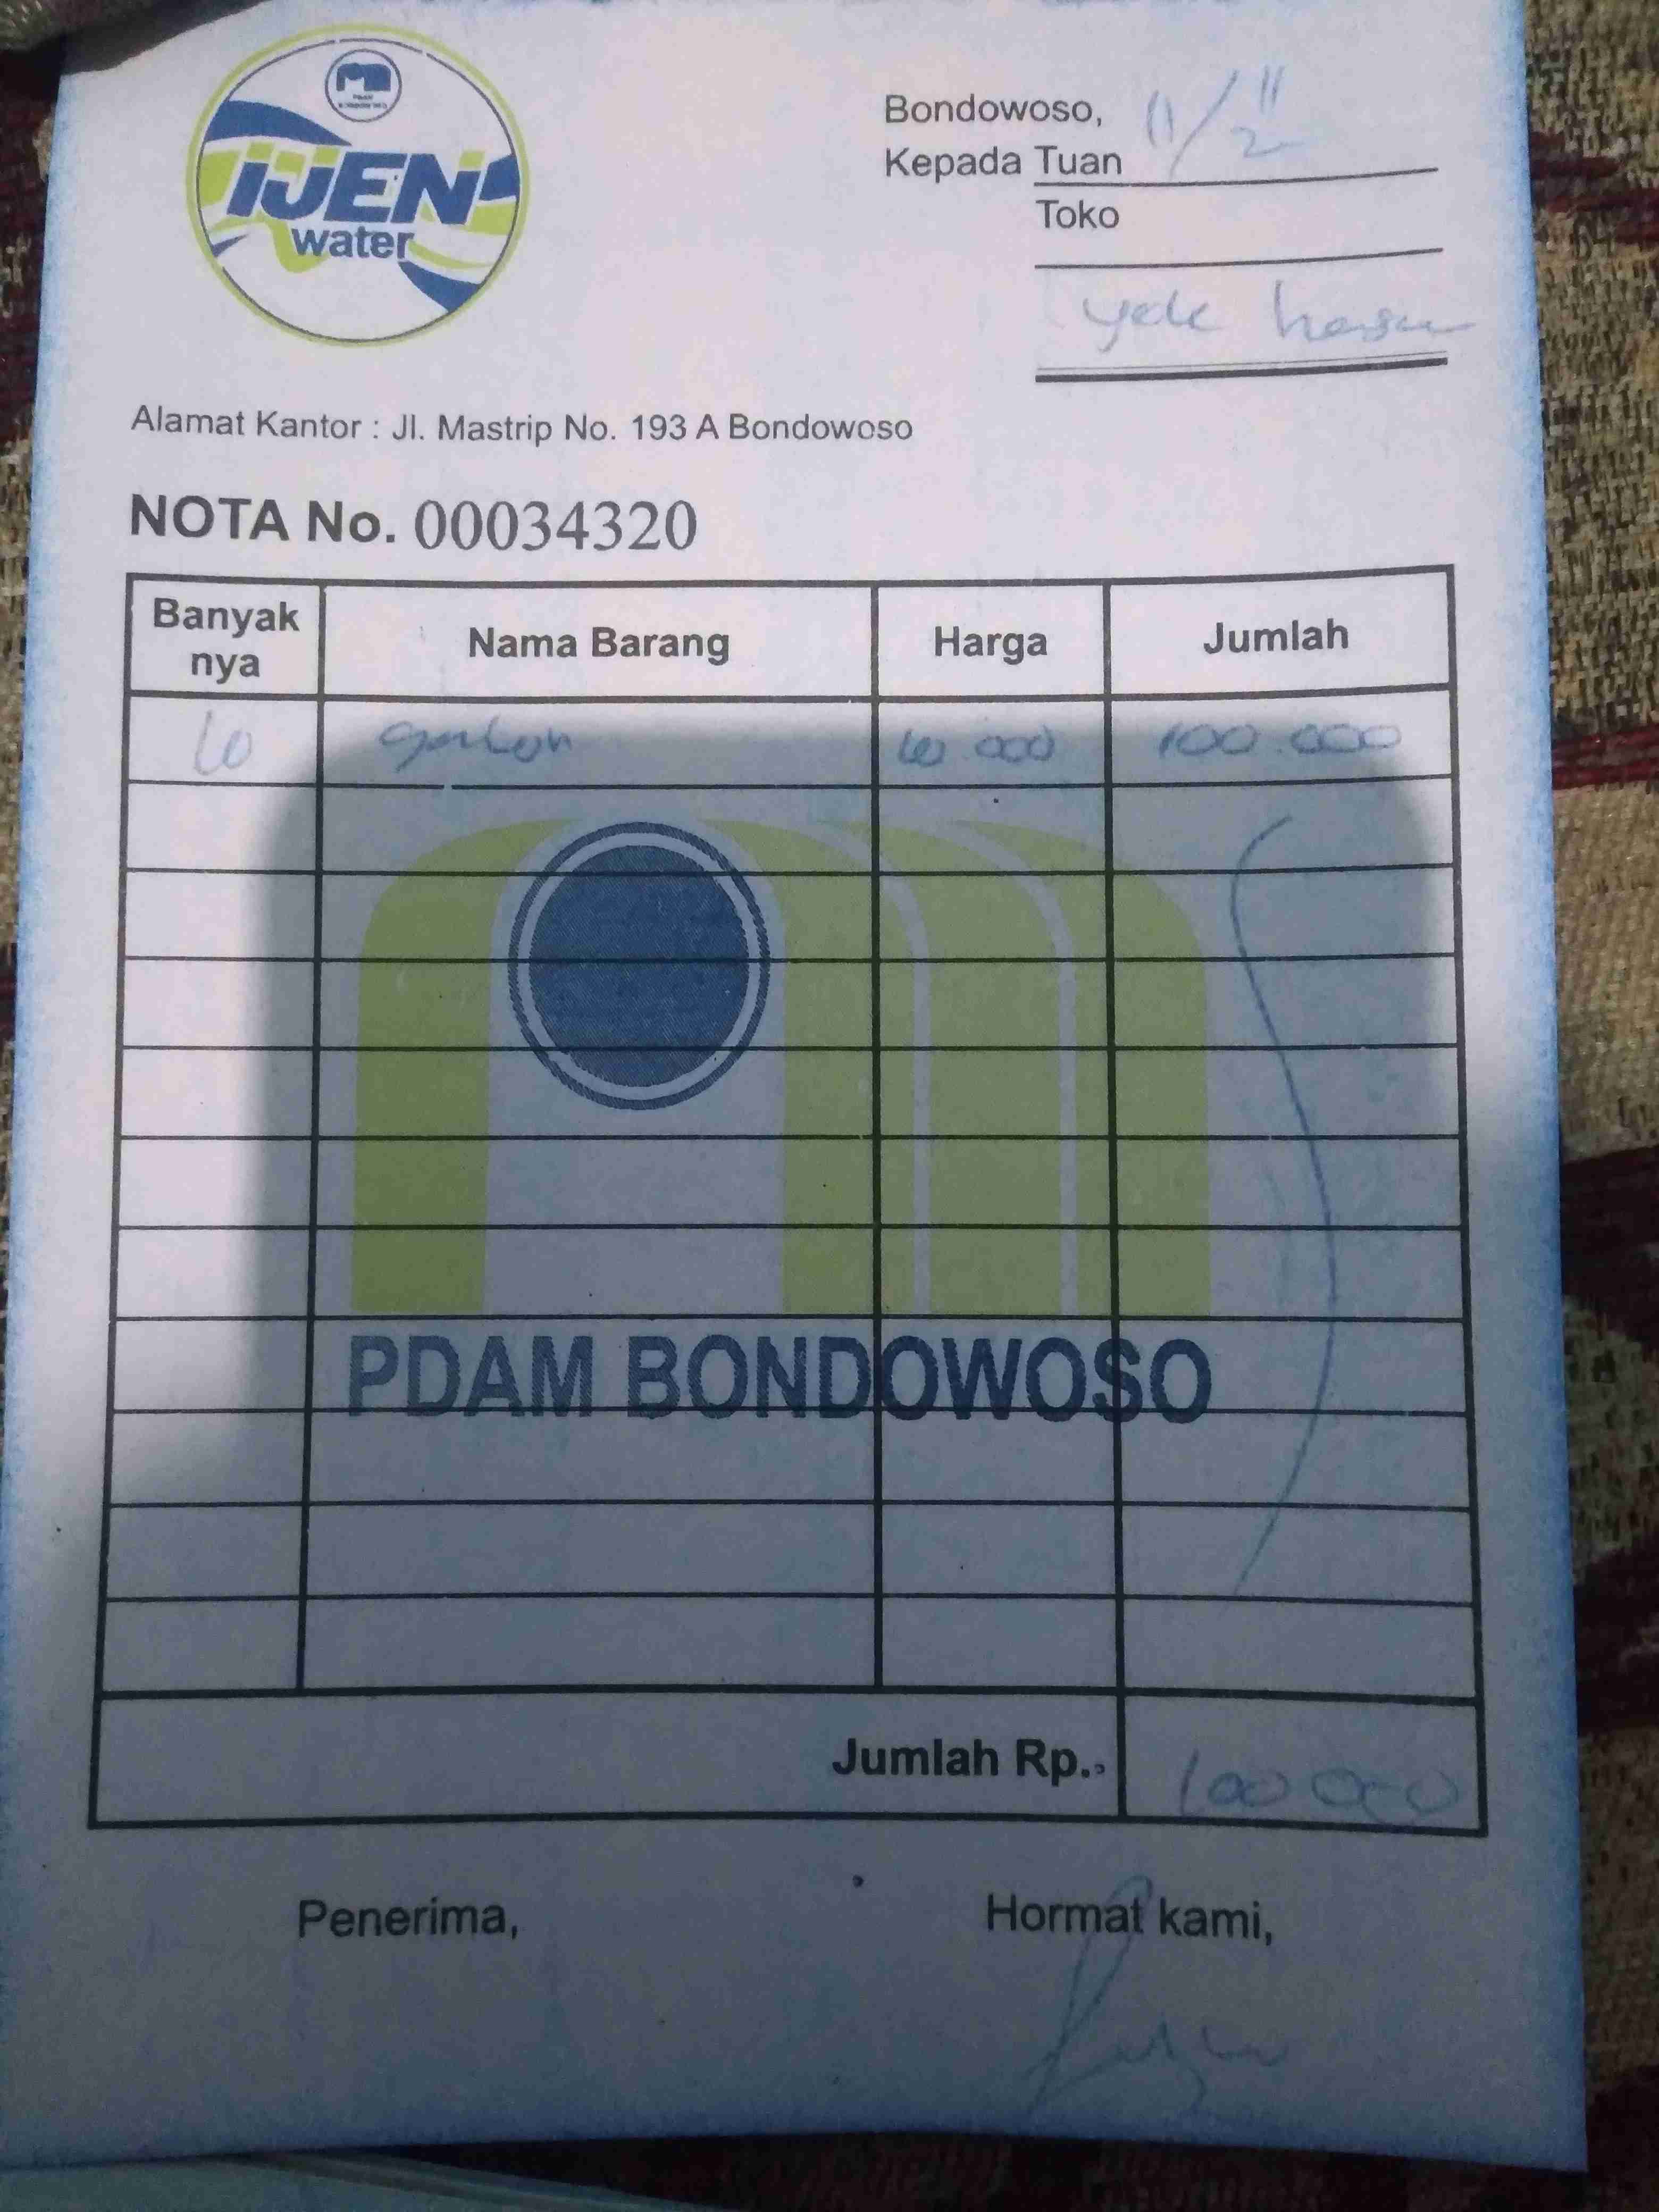 IJEN
water
Bondowoso, 11/11
2
Kepada Tuan
Toko
Alamat Kantor : Jl. Mastrip No. 193 A Bondowoso
NOTA No. 00034320
Banyak
nya
Nama Barang
Harga
Jumlah
10 galon 10.000 100.000
PDAM BONDOWOSO
Jumlah Rp.. 100 000
Penerima,
Hormat kami,